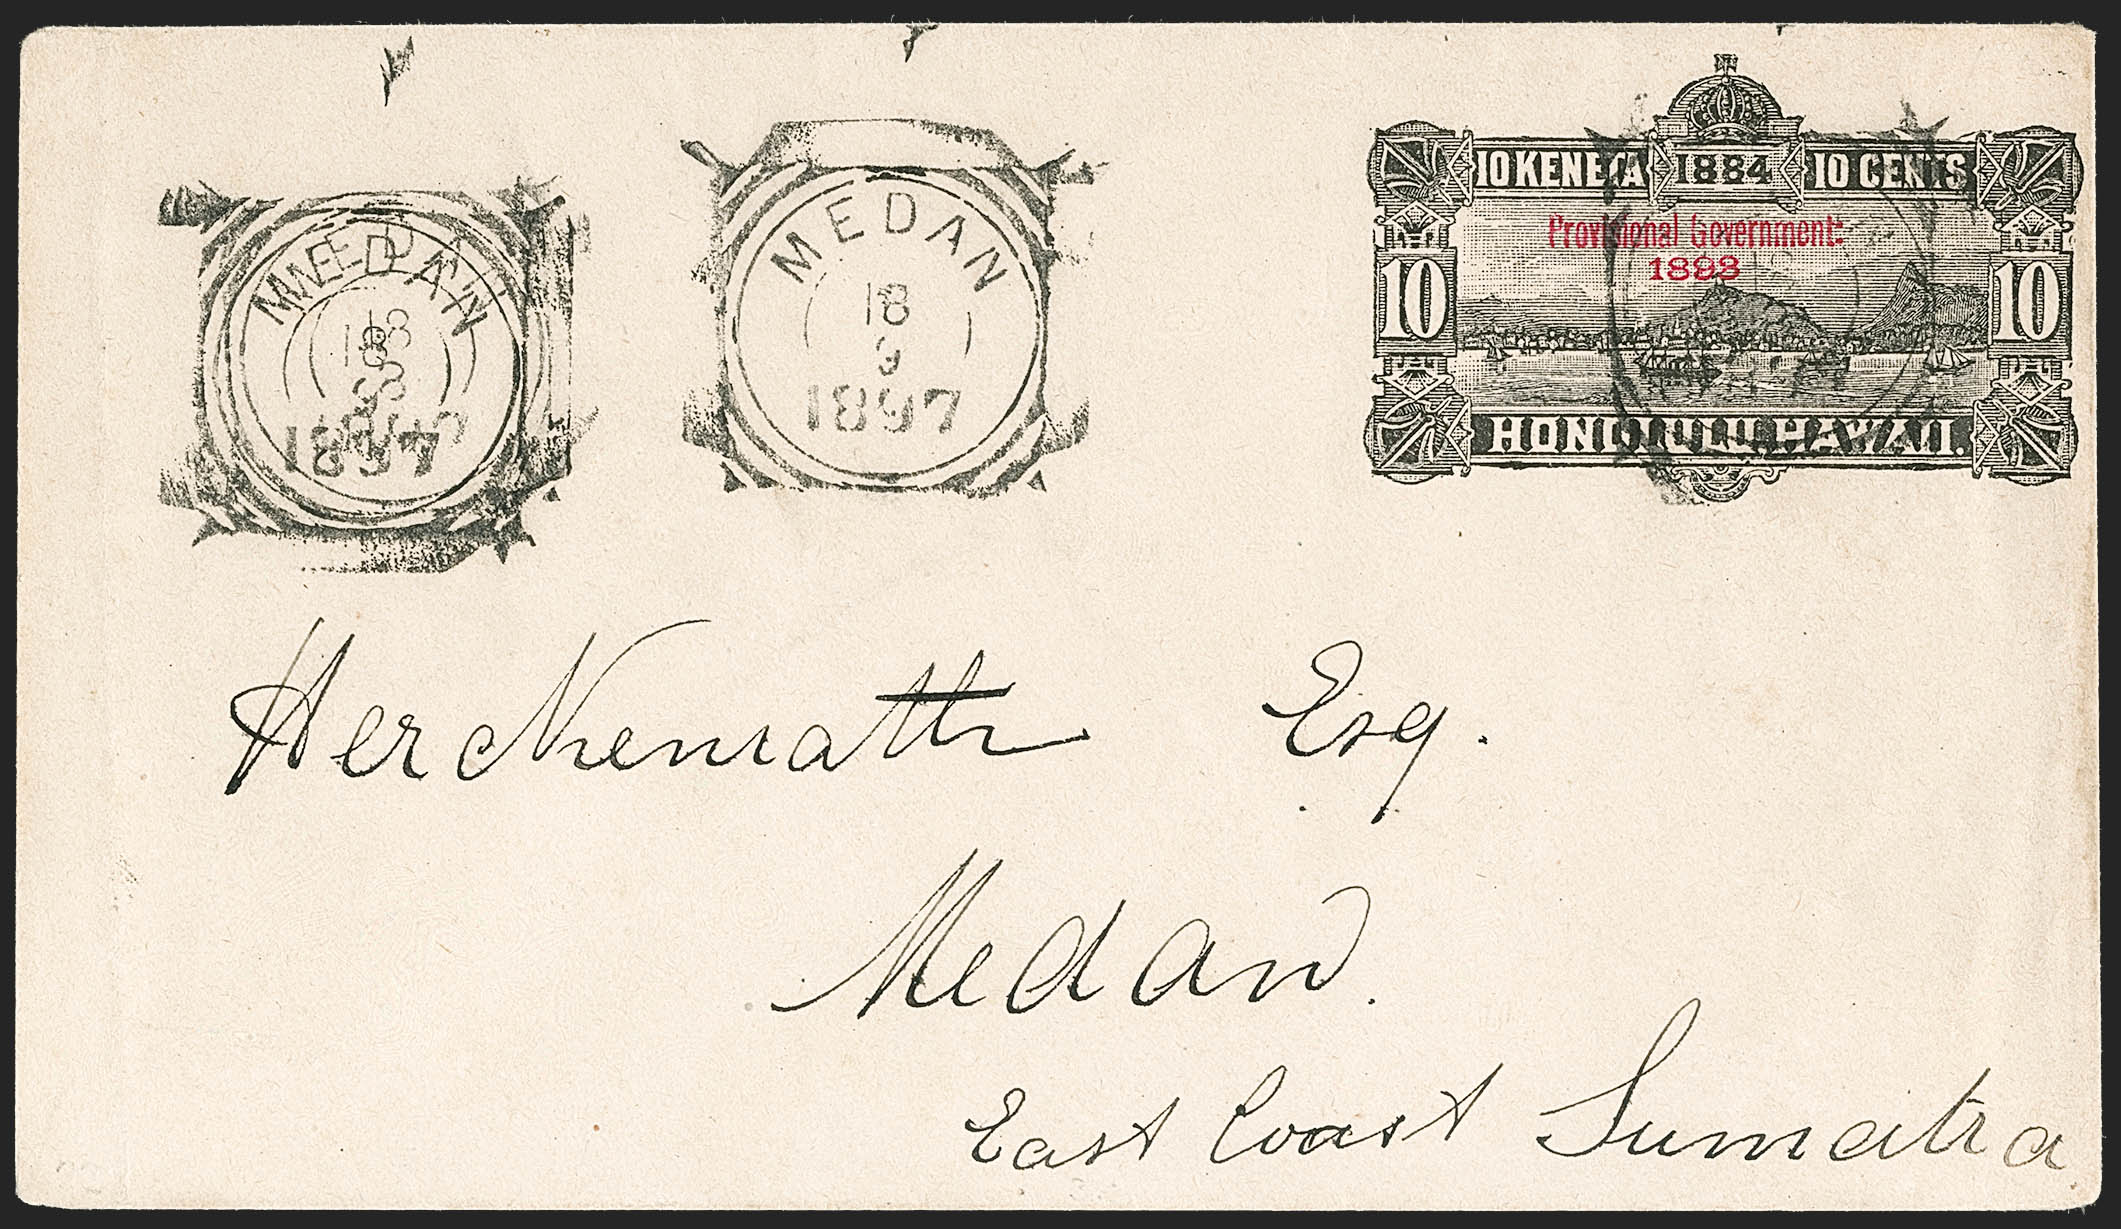 MEDAN
18
9
1897
MEDAN
18
9
1897
10 KENETA 1884 10 CENTS
Provisional Government
1893
10 10
HONOLULU, HAWAII.
Herckenrath Esq.
Medan.
East Coast Sumatra